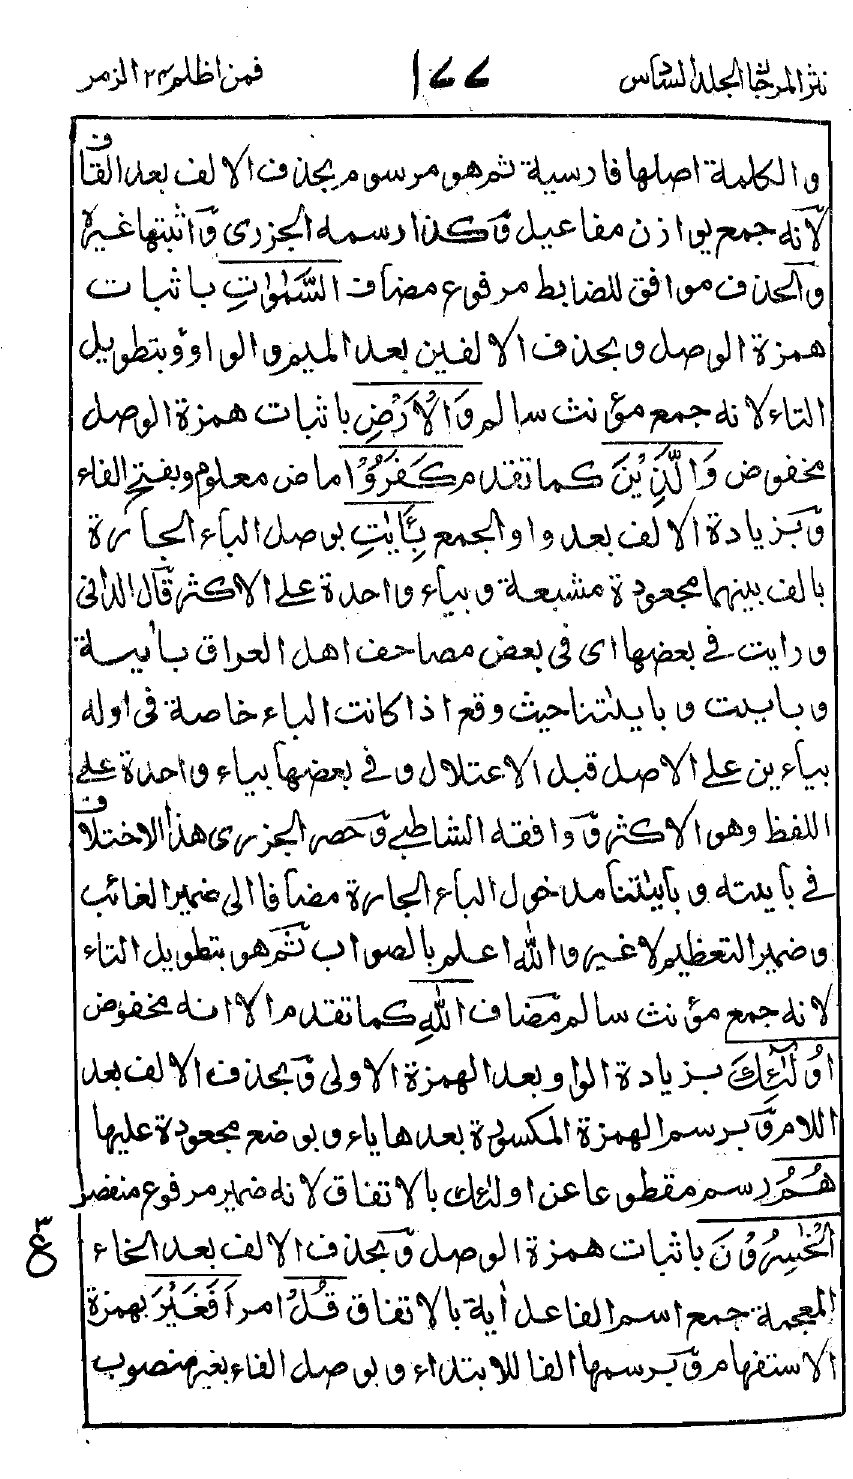 نثر المرجان الجلد السادس ١٧٧ فمن اظلم ٢٤ الزمر
والكلمة اصلها فارسية ثم هو مرسوم بحذف الالف بعد القاف
لانه جمع يوازن مفاعيل وكذا رسمه الجزرى واثبتها غيره
والحذف موافق للضابط مرفوع مضاف السَّمٰوٰتِ باثبات
همزة الوصل وبحذف الالفين بعد الميم والواو وبتطويل
التاء لانه جمع مؤنث سالم وَالْاَرْضِ باثبات همزة الوصل
مخفوض وَالَّذِيْنَ كما تقدم كَفَرُوْا ماض معلوم وبفتح الفاء
وبزيادة الالف بعد واو الجمع بِـَٔايٰتِ بوصل الباء الجارة
بالف بينهما مجعودة مشبعة وبياء واحدة على الاكثر قال الدانى
ورايت فى بعضها اى فى بعض مصاحف اهل العراق باييىة
وبايىت وبايىتنا حيث وقع اذا كانت الباء خاصة فى اوله
بياءين على الاصل قبل الاعتلال وفى بعضها بياء واحدة على
اللفظ وهو الاكثر ووافقه الشاطبى وحصر الجزرى هذا الاختلاف
فى باييته وباييتنا مدخول الباء الجارة مضافا الى ضمير الغائب
وضمير التعظيم لا غير والله اعلم بالصواب ثم هو بتطويل التاء
لانه جمع مؤنث سالم مضاف اللّٰهِ كما تقدم الا انه مخفوض
اُولٰٓئِكَ بزيادة الواو بعد الهمزة الاولى وبحذف الالف بعد
اللام وبرسم الهمزة المكسورة بعدها ياء وبوضع مجعودة عليها
هُمُ رسم مقطوعا عن اولئك بالاتفاق لانه ضمير مرفوع منفصل
الْخٰسِرُوْنَ باثبات همزة الوصل وبحذف الالف بعد الخاء
المعجمة جمع اسم الفاعل اٰية بالاتفاق قُلْ امر اَفَغَيْرَ بهمزة
الاستفهام وبرسمها الفا للابتداء وبوصل الفاء بغير منصوب
٣
ع